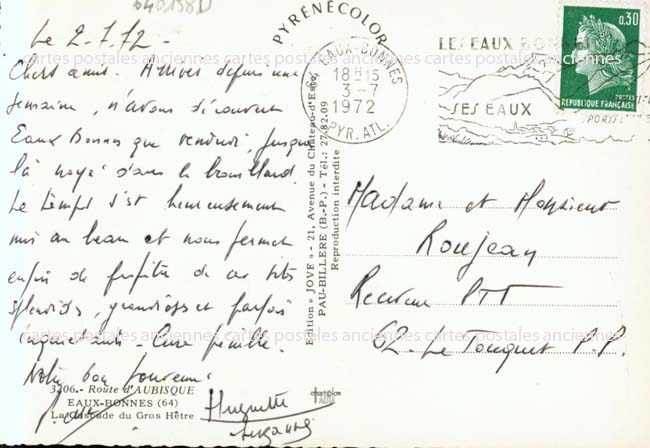 040158D
Le 2-7-72-
Chers amis. Arrivés depuis une
semaine, n'avons découvert
Eaux Bonnes que vendredi, jusque
là noyé dans le brouillard.
Le temps s'est heureusement
mis au beau et nous permet
enfin de profiter de ces sites
splendides, grandioses et parfois
inquiétants - Cure pénible.
Notre bon souvenir
Huguette
Suzanne
3206.- Route d'AUBISQUE
EAUX-BONNES (64)
La Cascade du Gros Hêtre
PYRÉNÉCOLOR
Edition "JOVE" - 21, Avenue du Château-d'Este,
PAU-BILLERE (B.-P.) - Tél.: 27.82.09
Reproduction interdite
EAUX-BONNES
18H15
3-7
1972
PYR. ATL.
LES EAUX BONNES
SES EAUX
SPORTS
0,30
POSTES
REPUBLIQUE FRANÇAISE
Madame et Monsieur
Roujean
Receveur PTT
62- Le Touquet P.P.
cartes postales anciennes cartes postales anciennes cartes postales anciennes
cartes postales anciennes cartes postales anciennes cartes postales anciennes